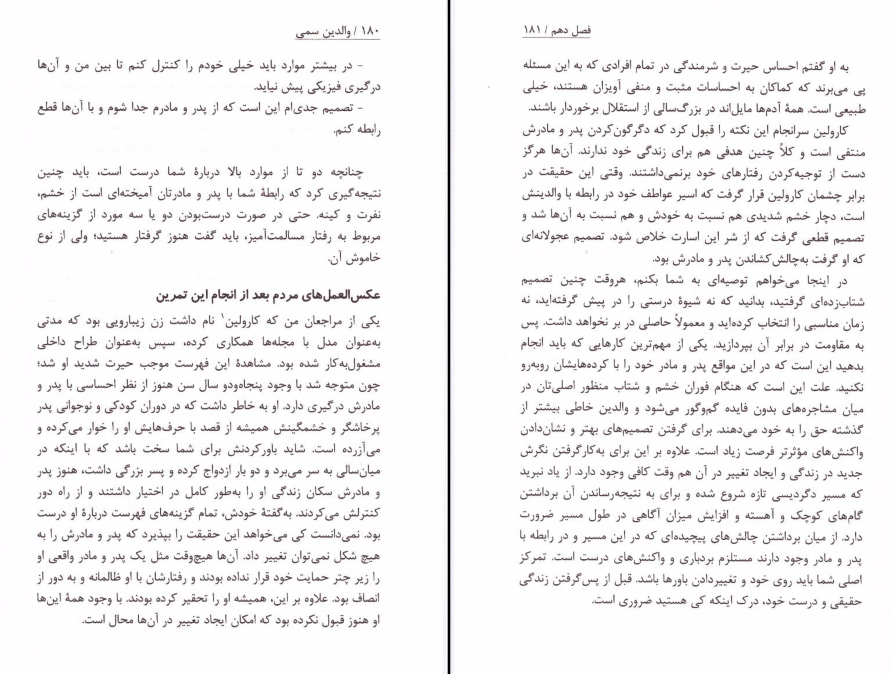 ۱۸۰ / والدین سمی
- در بیشتر موارد باید خیلی خودم را کنترل کنم تا بین من و آن‌ها
درگیری فیزیکی پیش نیاید.
- تصمیم جدی‌ام این است که از پدر و مادرم جدا شوم و با آن‌ها قطع
رابطه کنم.
چنانچه دو تا از موارد بالا دربارهٔ شما درست است، باید چنین
نتیجه‌گیری کرد که رابطهٔ شما با پدر و مادرتان آمیخته‌ای است از خشم،
نفرت و کینه. حتی در صورت درست‌بودن دو یا سه مورد از گزینه‌های
مربوط به رفتار مسالمت‌آمیز، باید گفت هنوز گرفتار هستید؛ ولی از نوع
خاموش آن.
عکس‌العمل‌های مردم بعد از انجام این تمرین
یکی از مراجعان من که کارولین۱ نام داشت زن زیبارویی بود که مدتی
به‌عنوان مدل با مجله‌ها همکاری کرده، سپس به‌عنوان طراح داخلی
مشغول‌به‌کار شده بود. مشاهدهٔ این فهرست موجب حیرت شدید او شد؛
چون متوجه شد با وجود پنجاه‌ودو سال سن هنوز از نظر احساسی با پدر و
مادرش درگیری دارد. او به خاطر داشت که در دوران کودکی و نوجوانی پدر
پرخاشگر و خشمگینش همیشه از قصد با حرف‌هایش او را خوار می‌کرده و
می‌آزرده است. شاید باورکردنش برای شما سخت باشد که با اینکه در
میان‌سالی به سر می‌برد و دو بار ازدواج کرده و پسر بزرگی داشت، هنوز پدر
و مادرش سکان زندگی او را به‌طور کامل در اختیار داشتند و از راه دور
کنترلش می‌کردند. به‌گفتهٔ خودش، تمام گزینه‌های فهرست دربارهٔ او درست
بود. نمی‌دانست کی می‌خواهد این حقیقت را بپذیرد که پدر و مادرش را به
هیچ شکل نمی‌توان تغییر داد. آن‌ها هیچ‌وقت مثل یک پدر و مادر واقعی او
را زیر چتر حمایت خود قرار نداده بودند و رفتارشان با او ظالمانه و به دور از
انصاف بود. علاوه بر این، همیشه او را تحقیر کرده بودند. با وجود همهٔ این‌ها
او هنوز قبول نکرده بود که امکان ایجاد تغییر در آن‌ها محال است.
فصل دهم / ۱۸۱
به او گفتم احساس حیرت و شرمندگی در تمام افرادی که به این مسئله
پی می‌برند که کماکان به احساسات مثبت و منفی آویزان هستند، خیلی
طبیعی است. همهٔ آدم‌ها مایل‌اند در بزرگ‌سالی از استقلال برخوردار باشند.
کارولین سرانجام این نکته را قبول کرد که دگرگون‌کردن پدر و مادرش
منتفی است و کلاً چنین هدفی هم برای زندگی خود ندارند. آن‌ها هرگز
دست از توجیه‌کردن رفتارهای خود برنمی‌داشتند. وقتی این حقیقت در
برابر چشمان کارولین قرار گرفت که اسیر عواطف خود در رابطه با والدینش
است، دچار خشم شدیدی هم نسبت به خودش و هم نسبت به آن‌ها شد و
تصمیم قطعی گرفت که از شر این اسارت خلاص شود. تصمیم عجولانه‌ای
که او گرفت به‌چالش‌کشاندن پدر و مادرش بود.
در اینجا می‌خواهم توصیه‌ای به شما بکنم، هروقت چنین تصمیم
شتاب‌زده‌ای گرفتید، بدانید که نه شیوهٔ درستی را در پیش گرفته‌اید، نه
زمان مناسبی را انتخاب کرده‌اید و معمولاً حاصلی در بر نخواهد داشت. پس
به مقاومت در برابر آن بپردازید. یکی از مهم‌ترین کارهایی که باید انجام
بدهید این است که در این مواقع پدر و مادر خود را با کرده‌هایشان روبه‌رو
نکنید. علت این است که هنگام فوران خشم و شتاب منظور اصلی‌تان در
میان مشاجره‌های بدون فایده گم‌وگور می‌شود و والدین خاطی بیشتر از
گذشته حق را به خود می‌دهند. برای گرفتن تصمیم‌های بهتر و نشان‌دادن
واکنش‌های مؤثرتر فرصت زیاد است. علاوه بر این برای به‌کارگرفتن نگرش
جدید در زندگی و ایجاد تغییر در آن هم وقت کافی وجود دارد. از یاد نبرید
که مسیر دگردیسی تازه شروع شده و برای به نتیجه‌رساندن آن برداشتن
گام‌های کوچک و آهسته و افزایش میزان آگاهی در طول مسیر ضرورت
دارد. از میان برداشتن چالش‌های پیچیده‌ای که در این مسیر و در رابطه با
پدر و مادر وجود دارند مستلزم بردباری و واکنش‌های درست است. تمرکز
اصلی شما باید روی خود و تغییردادن باورها باشد. قبل از پس‌گرفتن زندگی
حقیقی و درست خود، درک اینکه کی هستید ضروری است.